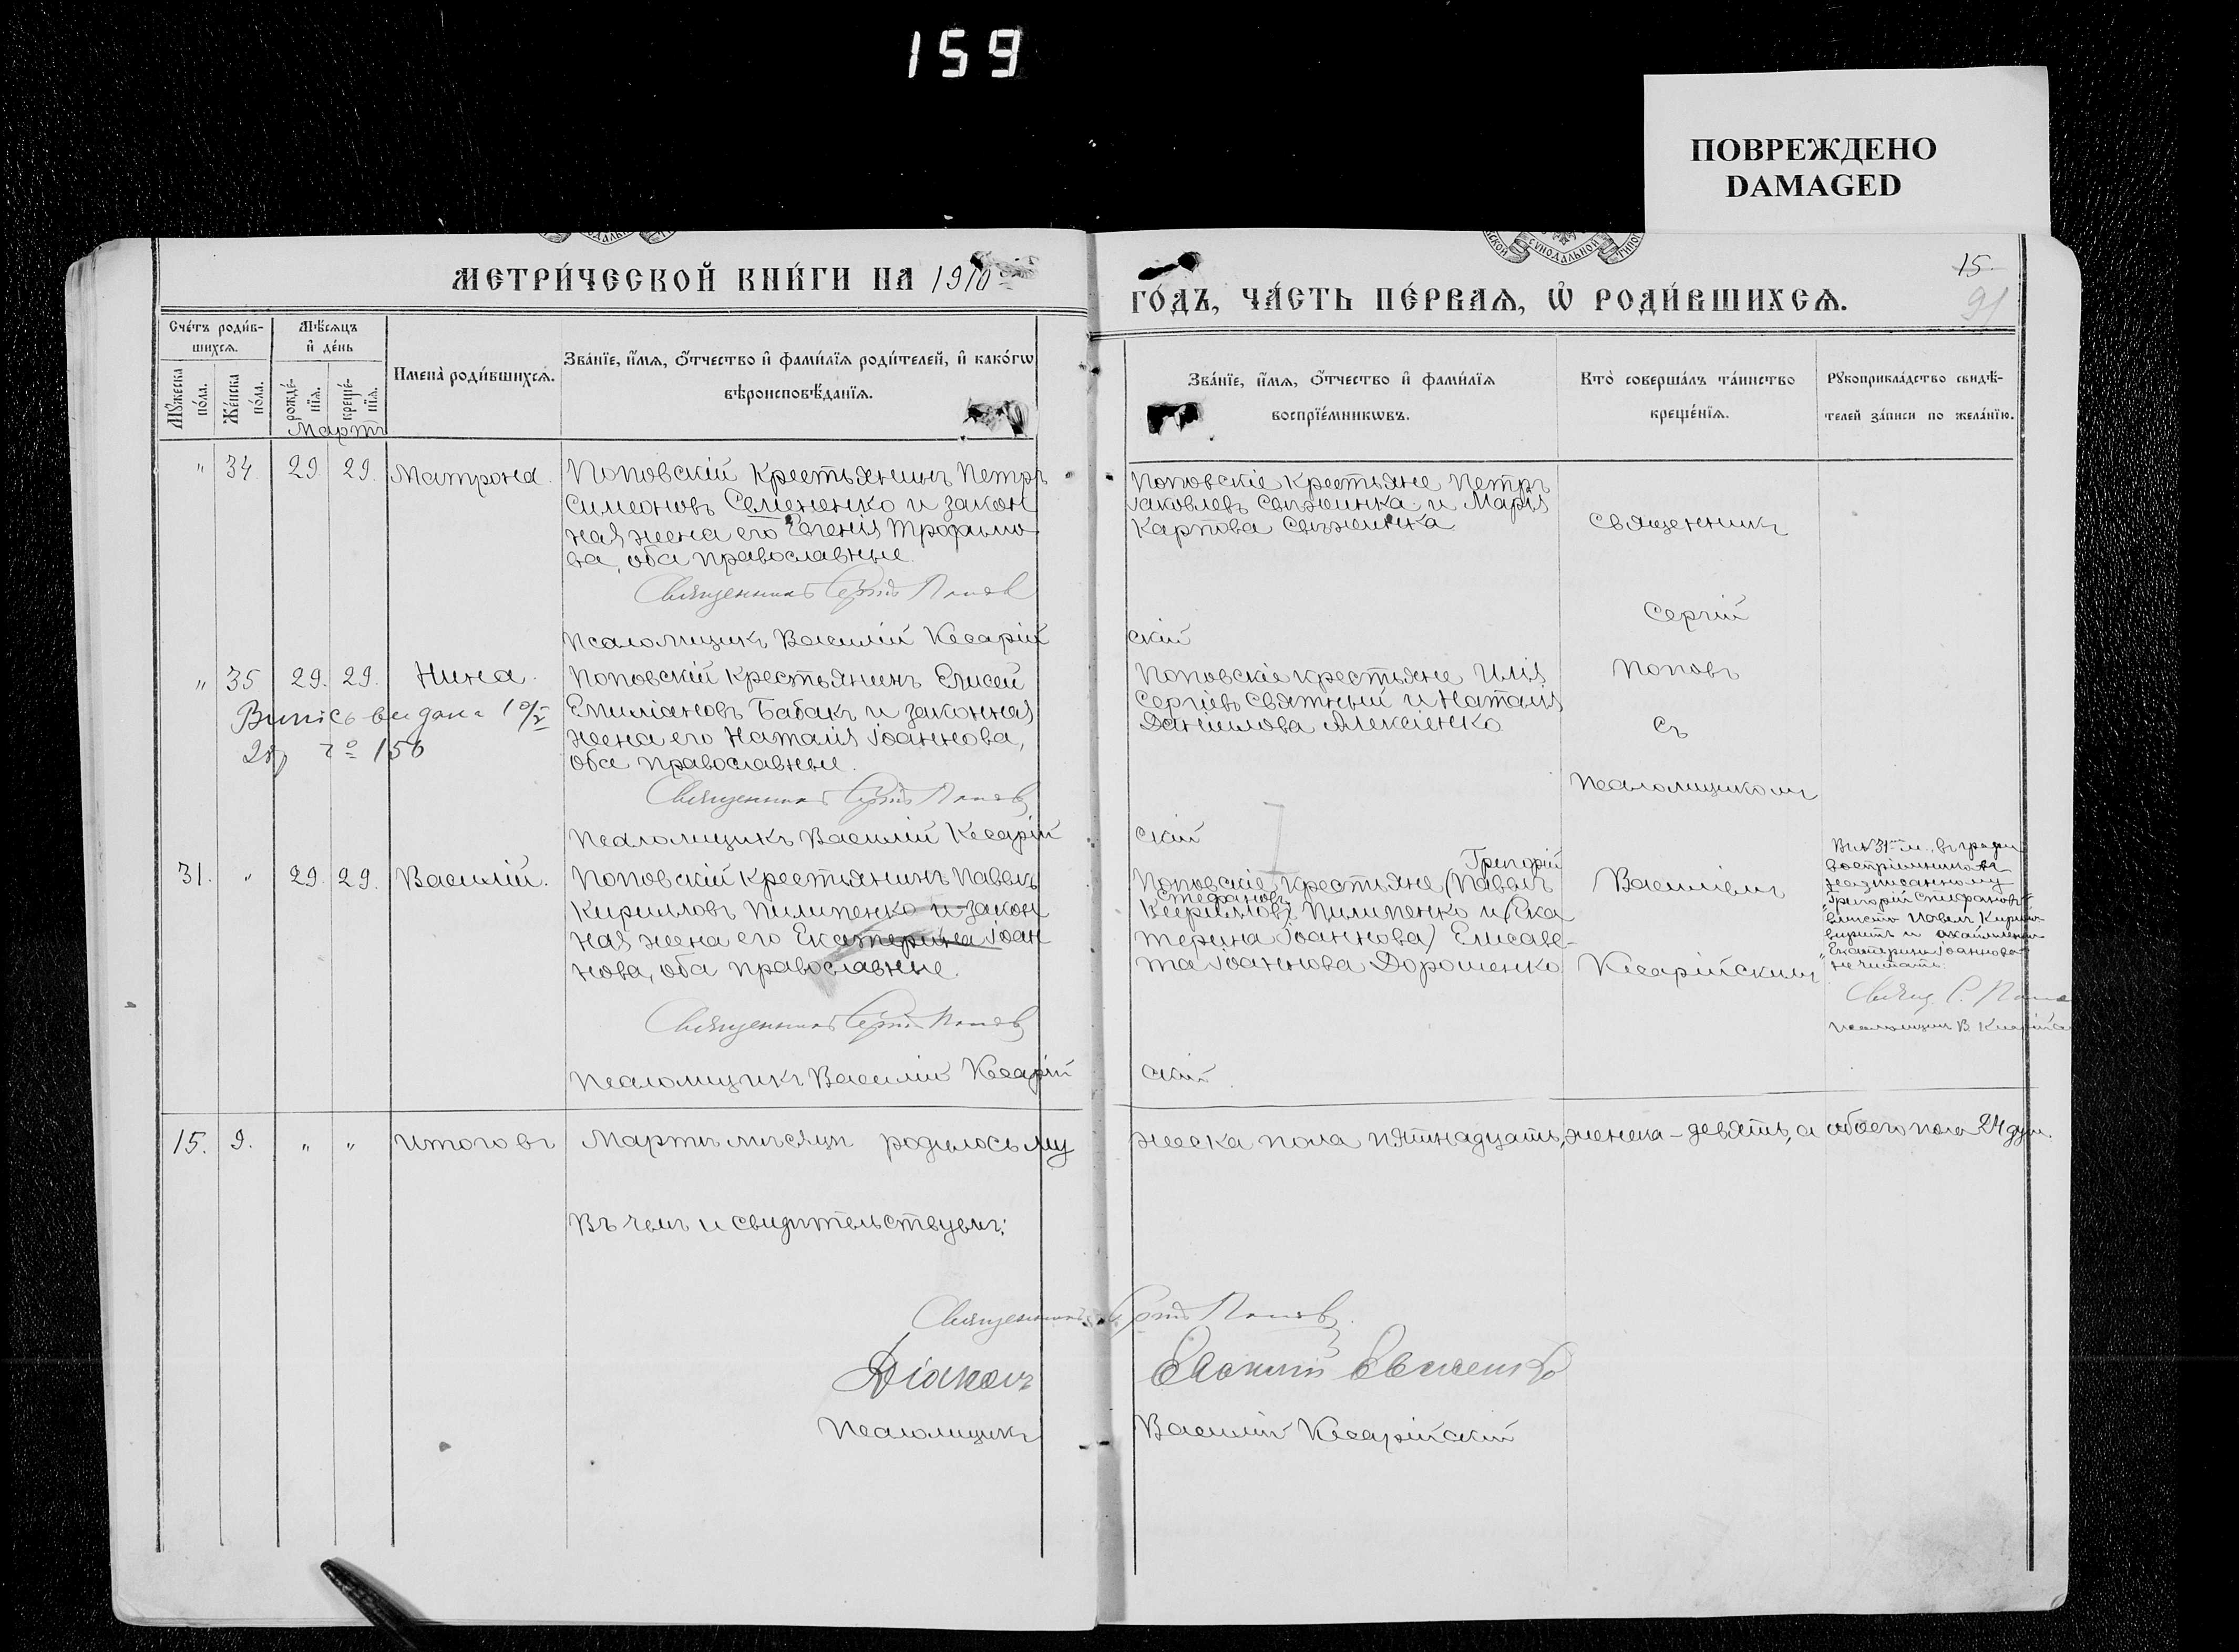 159
ПОВРЕЖДЕНО
DAMAGED
МЕТРИ́ЧЕСКОЙ КНИ́ГИ НА 1910
ГО́ДЪ, ЧА́СТЬ ПЕ́РВАѦ, Ѡ҆ РОДИ́ВШИХСѦ.
15
91
Сче́тъ роди́в-
шихсѧ.
Мѣ́сѧцъ
и҆ де́нь
Мꙋ́жеска
по́ла.
Же́нска
по́ла.
рожде́-
нїѧ.
креще́-
нїѧ.
Имена̀ роди́вшихсѧ.
Зва́нїе, и҆́мѧ, ѻ҆́тчество и҆ фами́лїѧ роди́телей, и҆ како́гѡ
вѣроисповѣ́данїѧ.
Зва́нїе, и҆́мѧ, ѻ҆́тчество и҆ фами́лїѧ
воспрїе́мникѡвъ.
Кто̀ соверша́лъ та́инство
креще́нїѧ.
Рꙋкоприкла́дство свидѣ́-
телей за́писи по жела́нїю.
Мартъ
" 34 29 29. Матрона.
Поповскій крестьянинъ Петръ
Симеоновъ Семененко и закон
ная жена его Евгенія Трофимо
ва, оба православные.
Священникъ Сергій Поповъ
Псаломщикъ Василій Кесарій
скій
Поповскіе крестьяне Петръ
Іаковлевъ Свѣжинка и Марія
Карпова Свѣжинка
Священникъ
Сергій
" 35 29. 29. Нина.
Выпись выдана
156
Поповскій крестьянинъ Елисей
Емиліановъ Бабакъ и законная
жена его Наталія Іоаннова,
оба православные.
Священникъ Сергій Поповъ
Псаломщикъ Василій Кесарій
скій
Поповскіе крестьяне Илія
Сергіевъ Святный и Наталія
Даніилова Алексіенко
Поповъ
съ
Псаломщикомъ
31. " 29. 29. Василій.
Поповскій крестьянинъ Павелъ
Кирилловъ Пилипенко и закон
ная жена его Екатерина Іоан
нова, оба православные.
Священникъ Сергій Поповъ
Псаломщикъ Василій Кесарій
скій
Григорій
Поповскіе крестьяне (Павелъ
Стефановъ
Кирилловъ) Пилипенко и (Ека
терина Іоаннова) Елисаве-
та Іоаннова Дорошенко
Василіемъ
Кесарійскимъ
Въ № 31 м. въ графѣ
воспріемниковъ
надписанному
"Григорій Стефановъ"
вмѣсто Павелъ Кирилловъ
вѣрить и
"Екатерина Іоаннова"
не читать.
Свящ. С. Попов
псаломщик В. Кесарійск
15. 9. " " Итого въ Мартѣ мѣсяцѣ родилось му
жеска пола пятнадцать, женска – девять, а обоего пола 24 душ.
Въ чемъ и свидѣтельствуемъ:
Священникъ Сергій Поповъ.
Діаконъ
Псаломщикъ Василій Кесарійскій